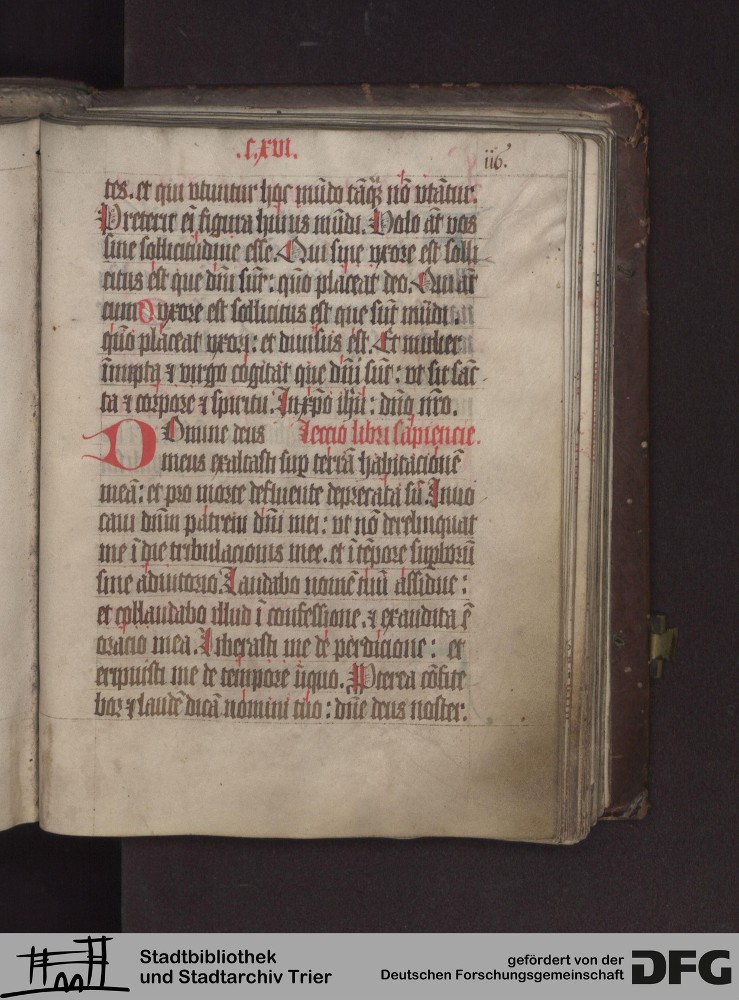 .C.XVI.
116.
tes. et qui vtuntur hoc mūdo tāq̄ʒ nō vtātur.
Preterit eī figura huius mūdi. Volo āt vos
sine sollicitudine esse. Qui sine vxore est solli
citus est que dn̄i sūt: quō placeat deo. Qui āt
cum vxore est sollicitus est que sūt mūdi.
quō placeat vxori: et diuisus est. Et mulier
īnupta ⁊ virgo cogitat que dn̄i sūt: vt sit sāc
ta ⁊ corpore ⁊ spiritu. In xp̄o ih̄u: dn̄o nr̄o.
DOmine deus Leccio libri sapiencie.
meus exaltasti suꝑ terrā habitacionē
meā: et pro morte defluente deprecata sū. Inuo
caui dn̄m patrem dn̄i mei: vt nō derelinquat
me ī die tribulacionis mee. et ī tēpore suꝑborū
sine adiutorio. Laudabo nomē tuū assidue:
et collaudabo illud ī confessione. ⁊ exaudita ē
oracio mea. Liberasti me de perdicione: et
eripuisti me de tempore īiquo. Pterea cōfite
bor ⁊ laudē dicā nomini tuo: dn̄e deus noster.
Stadtbibliothek
und Stadtarchiv Trier
gefördert von der
Deutschen Forschungsgemeinschaft
DFG